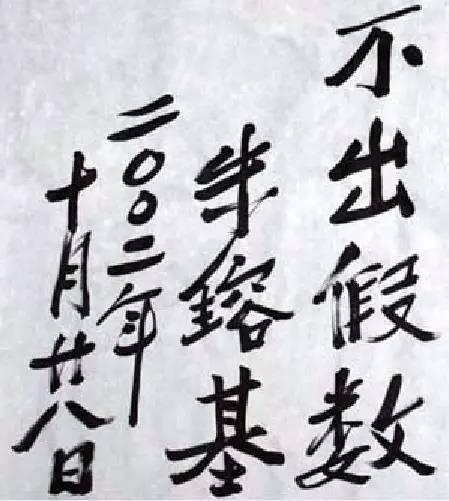 不出假数
朱鎔基
二〇〇二年
十月廿八日